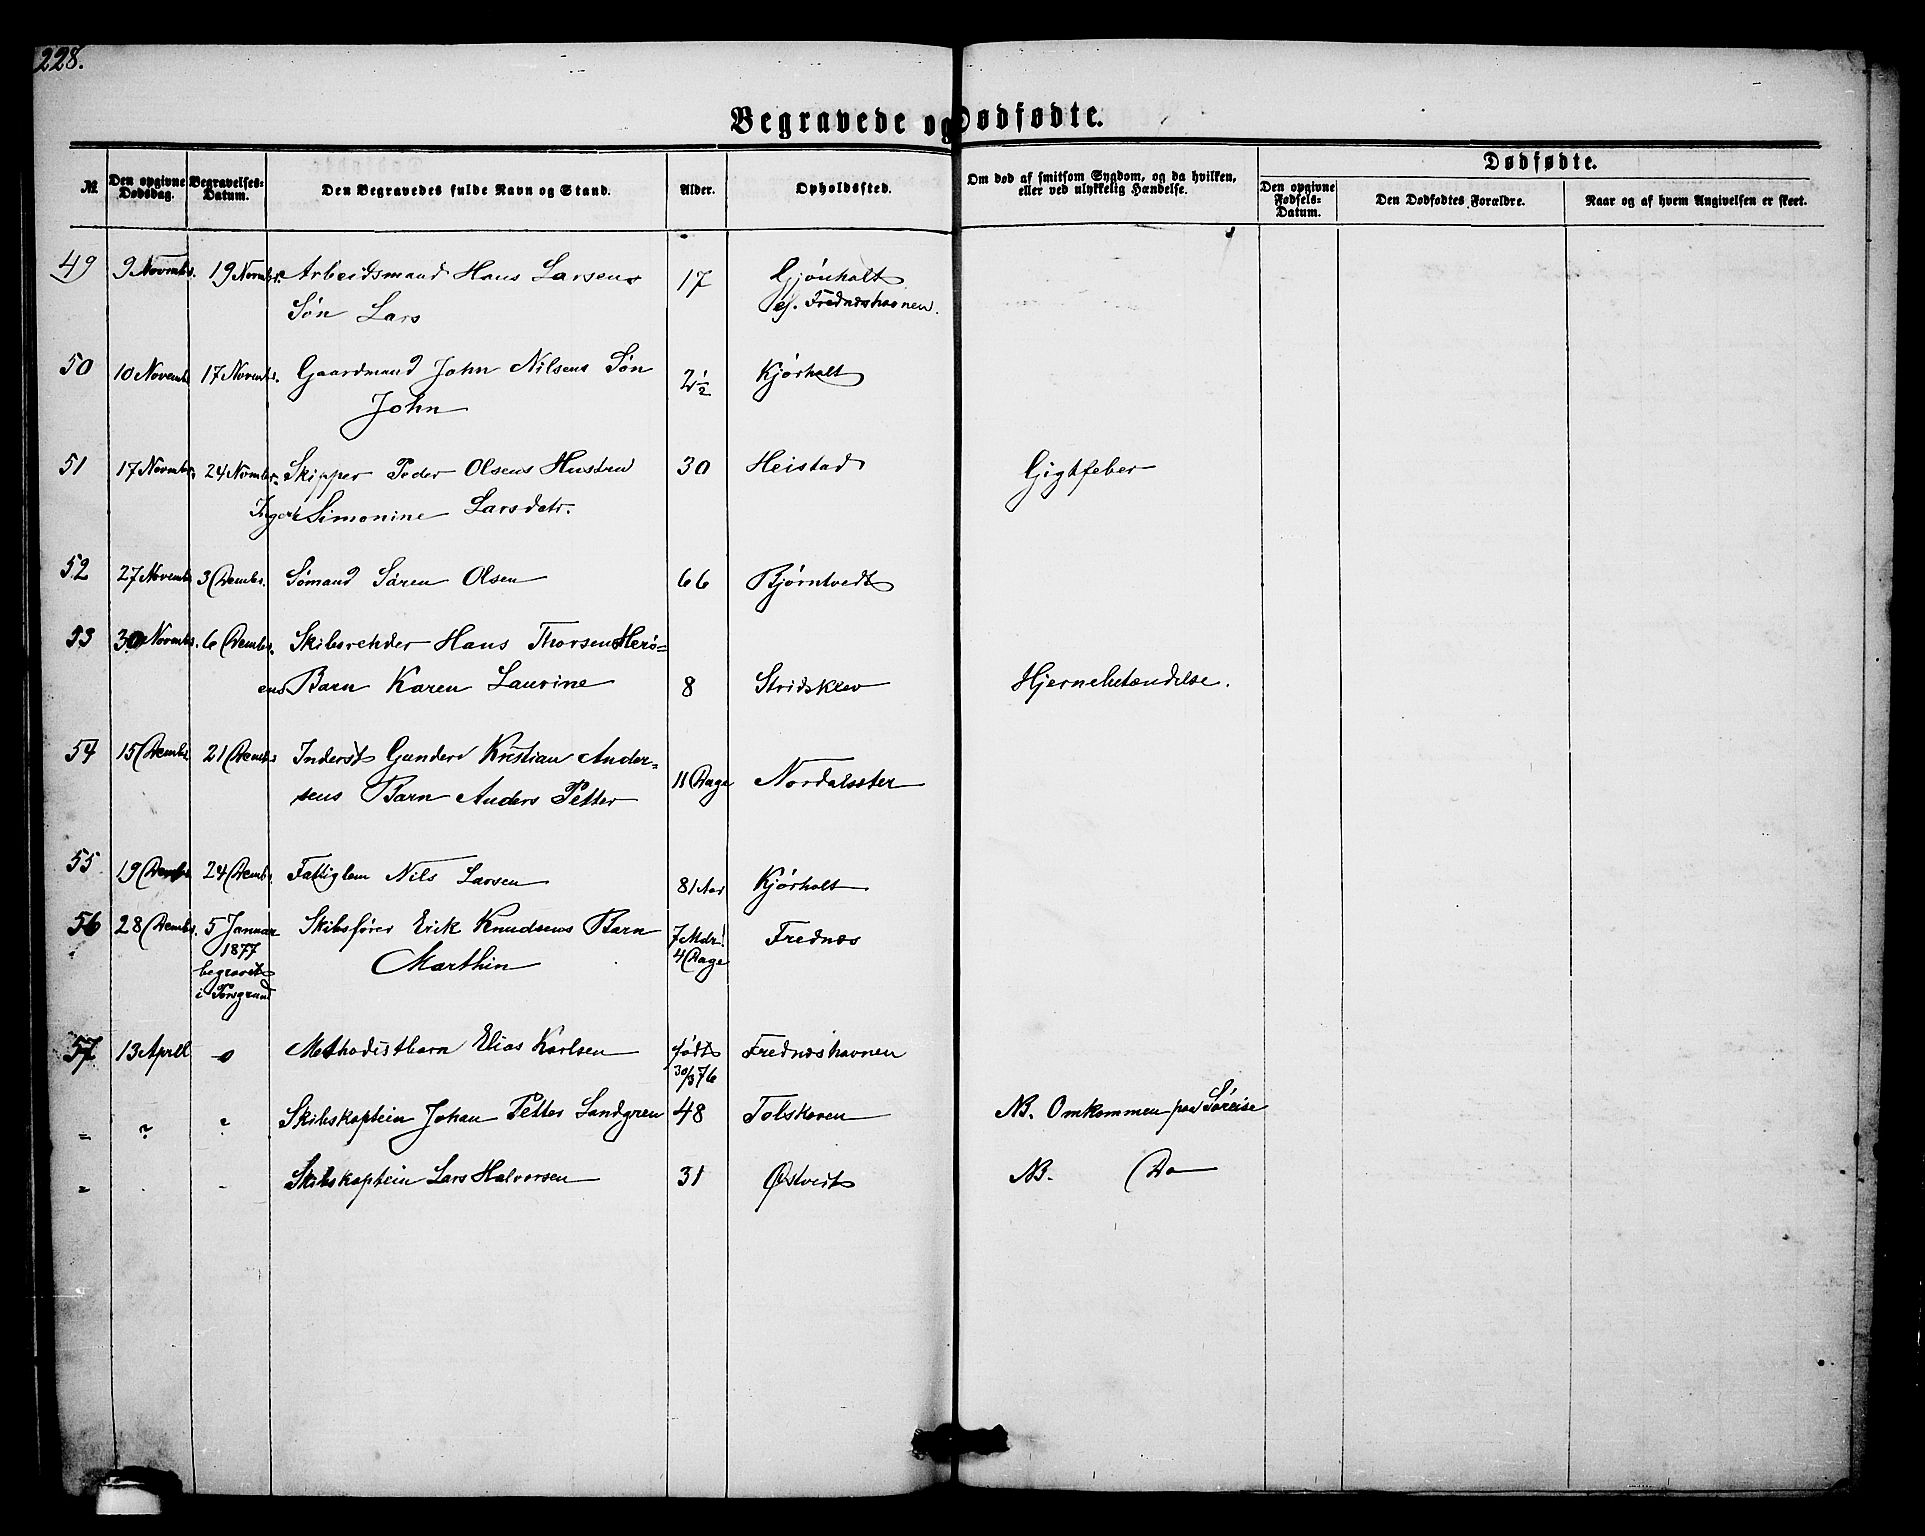 228.
Begravede og Dødfødte.
№
Den opgivne Dødsdag.
Begravelses-Datum.
Den Begravedes fulde Navn og Stand.
Alder.
Opholdssted.
Om død af smitsom Sygdom, og da hvilken, eller ved ulykkelig Hændelse.
Dødfødte.
Den opgivne Fødsels-Datum.
Den Dødfødtes Forældre.
Naar og af hvem Angivelsen er skeet.
49 9 Novmbr. 19 Novmbr. Arbeidsmand Hans Larsens 17 Gjønholt
Søn Lars ej. Frednæshavnen.
50 10 Novemb 17 Novmbr. Gaardmand John Nilsens Søn 2½ Kjørholt
John
51 17 Novmbr. 24 Novmbr. Skipper Peder Olsens Hustru 30 Heistad Gigtfeber
Ingerk Simonine Larsdatr.
52 27 Novemb 3 Dembr. Sømand Søren Olsen 66 Bjørntvedt
53 30 Novmbr. 6 Dembr. Skibsrehder Hans Thorsen Herø-
ens Barn Karen Laurine 8 Stridsklev Hjernebetændelse.
54 15 Dembr 21 Dembr Inderst Gunder Kristian Ander-
sens Barn Anders Petter 11 Dage Nordalsster
55 19 Dembr 24 Dembr. Fattiglem Nils Larsen 81 Aar Kjørholt
56 28 Dembr. 5 Januar Skibsfører Erik Knudsens Barn 7 Mdr. Frednæs
1877 Marthin 4 Dage
begravet
i Porsgrund
57 13 April -o Methodistbarn Elias Karlsen født Frednæshavnen
30/3 76
= ? - Skibskaptein Johan Petter Landgren 48 Tolskoven NB. Omkommen paa Søreise
= - Skibskaptein Lars Halvorsen 31 Østvedt NB. Do